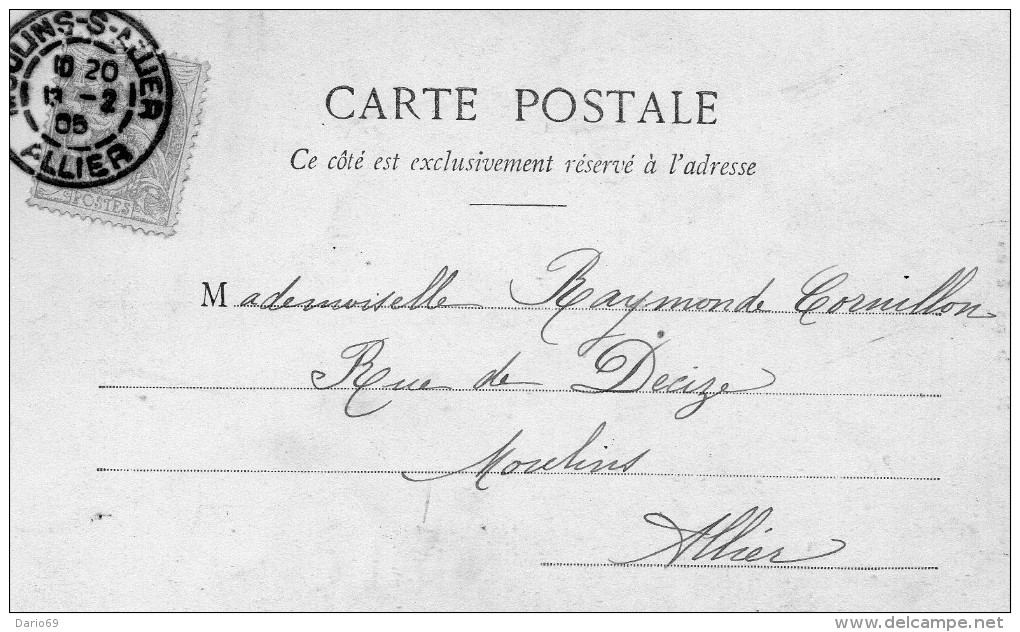 MOULINS-S-ALLIER
10 20
13 -2
05
ALLIER
POSTES
CARTE POSTALE
Ce côté est exclusivement réservé à l'adresse
Mademoiselle Raymonde Cornillon
Rue de Decize
Moulins
Allier
Dario69
www.delcampe.net